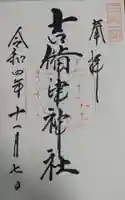 奉拝
吉備津神社
令和四年十一月七日